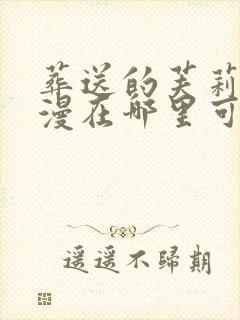 葬送的芙莉
漫在哪里可
遥遥不歸期